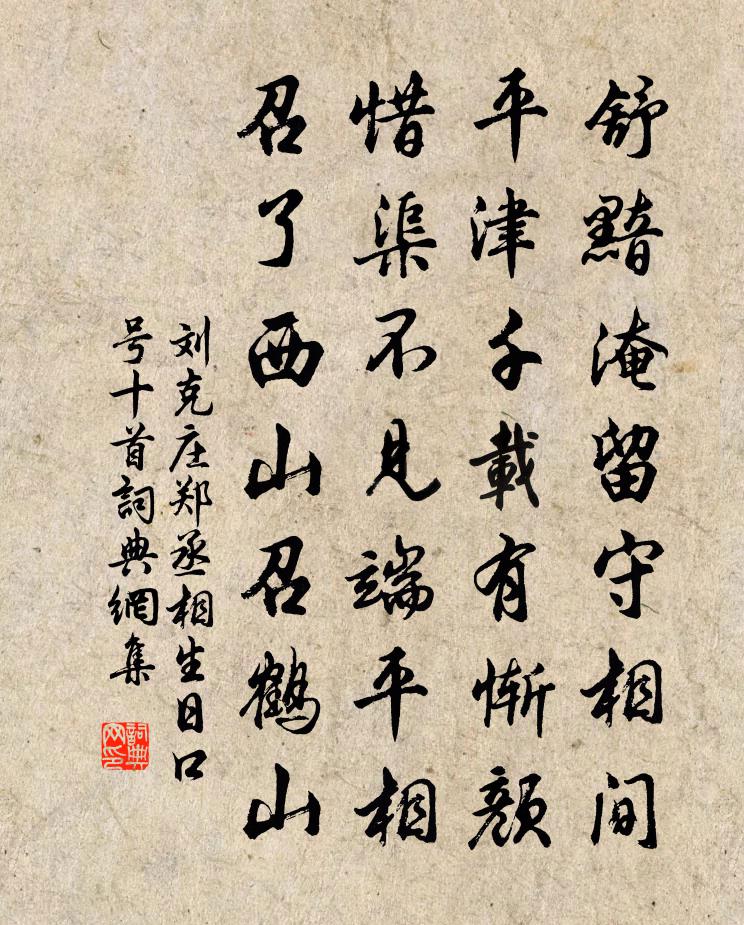 舒黯淹留守相间
平津千载有惭颜
惜渠不见端平相
召了西山召鹤山
刘克庄郑丞相生日口
号十首詞典網集
詞典
网印